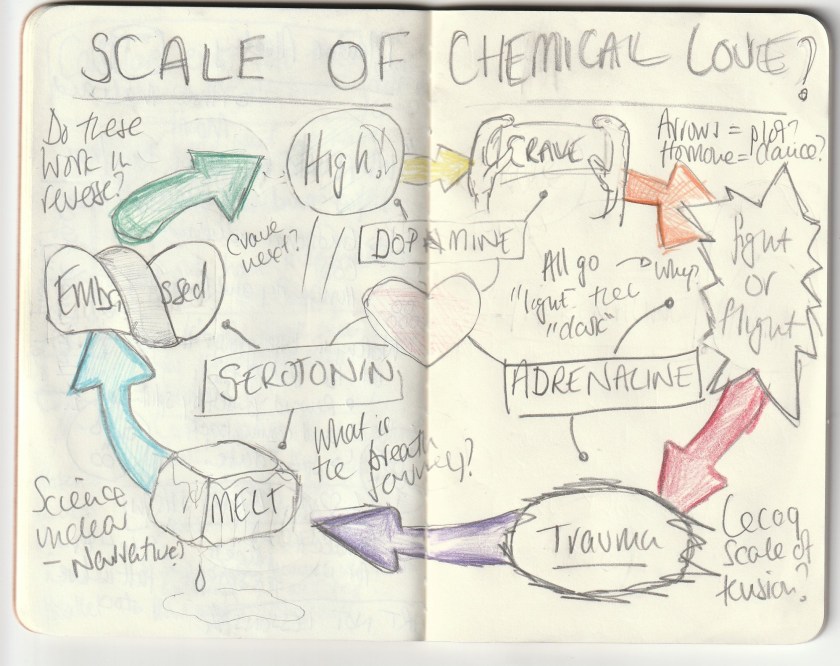 SCALE OF CHEMICAL LOVE?
Do these
work in
reverse?
High!
CRAVE
Arrows = plot?
Homone = dance?
Crave
next?
DOPAMINE
fight
or
flight
All go
"light" then
"dark"
Why?
Emb ssed
SEROTONIN
ADRENALINE
What is
the breath
journey?
MELT
Science
unclear
- Narrative?
Trauma
Lecoq
scale of
tension?